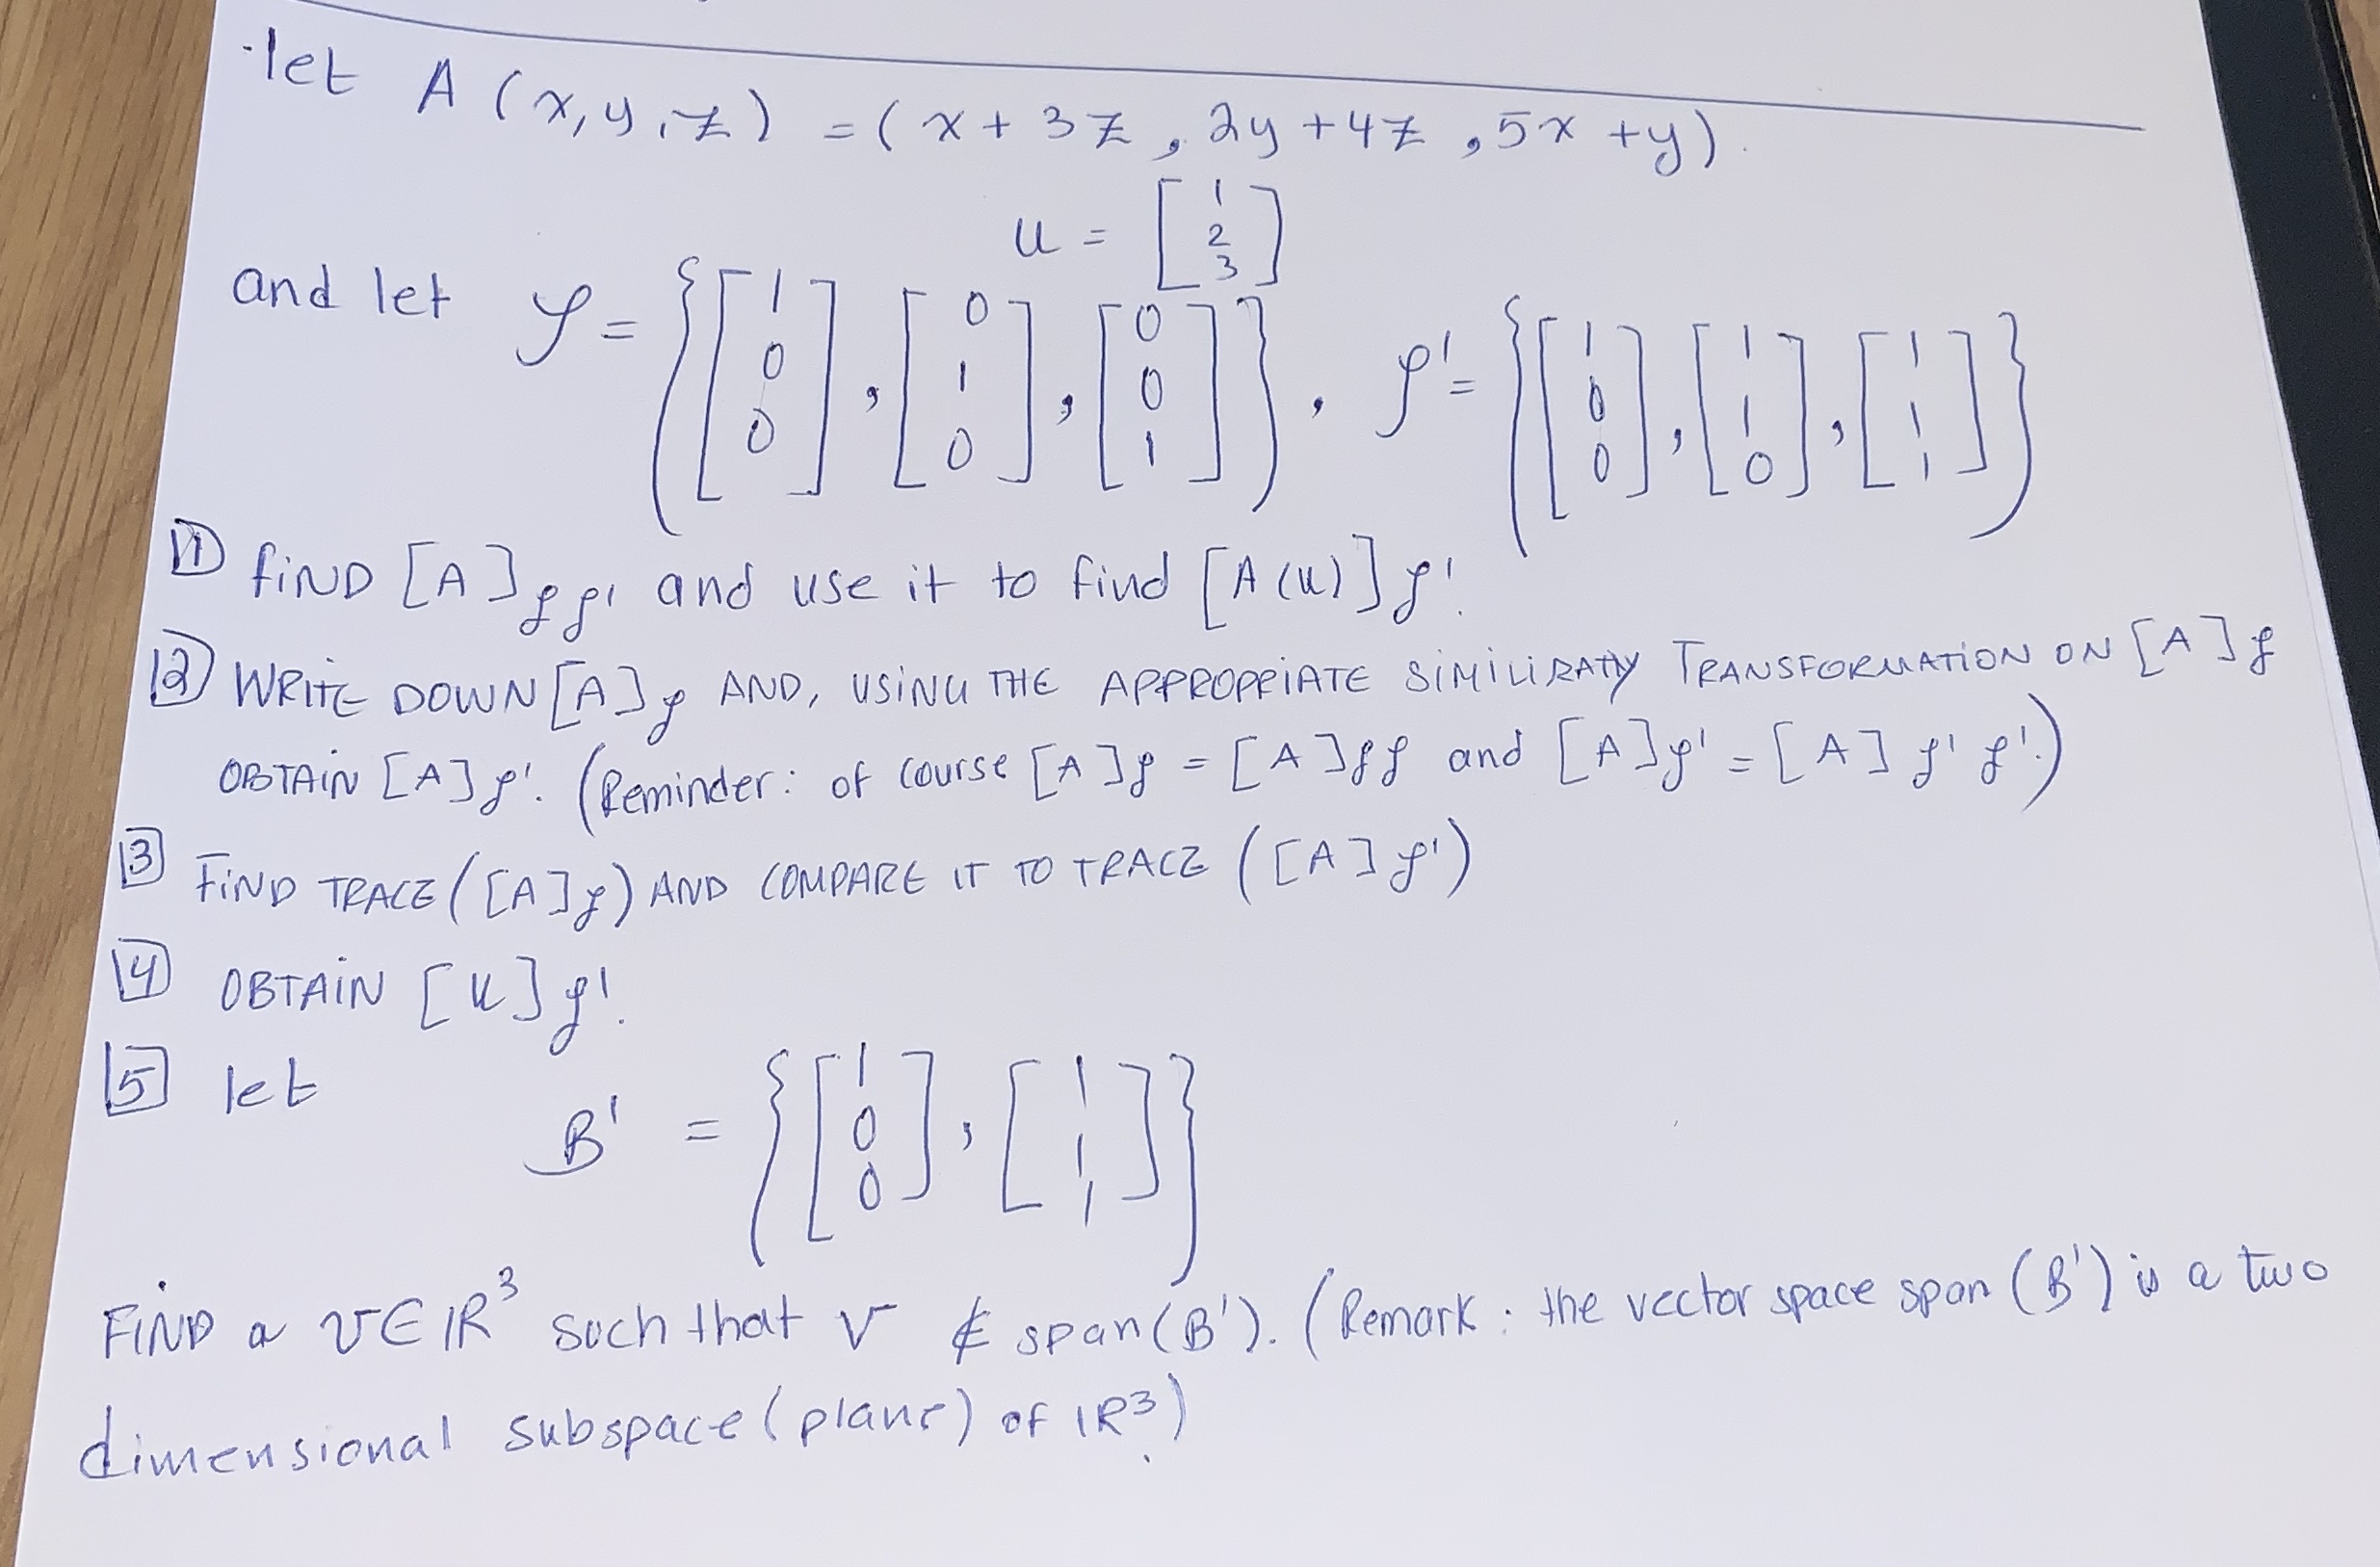 let A (x, y, z) = ( x + 3z , 2y + 4z , 5x + y ).
u = [1 2 3]
and let 𝒮 = { [1 0 0] , [0 1 0] , [0 0 1] } , 𝒮' = { [1 0 0] , [1 1 0] , [1 1 1] }
1 FIND [A]𝒮𝒮' and use it to find [A(u)]𝒮'.
2 WRITE DOWN [A]𝒮 AND, USING THE APPROPRIATE SIMILIRATY TRANSFORMATION ON [A]𝒮
OBTAIN [A]𝒮'. (Reminder: of course [A]𝒮 = [A]𝒮𝒮 and [A]𝒮' = [A]𝒮'𝒮'.)
3 FIND TRACE ([A]𝒮) AND COMPARE IT TO TRACE ([A]𝒮')
4 OBTAIN [u]𝒮'.
5 let
B' = { [1 0 0] , [1 1 1] }
FIND a v ∈ ℝ³ such that v ∉ span(B'). (Remark : the vector space span (B') is a two
dimensional subspace (plane) of ℝ³.)